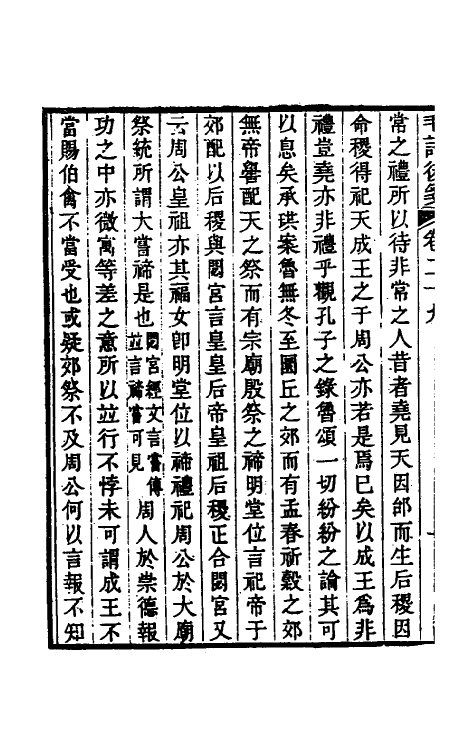 毛詩後箋 卷二十九
常之禮所以待非常之人昔者堯見天因邰而生后稷因
命稷得祀天成王之于周公亦若是焉已矣以成王爲非
禮豈堯亦非禮乎觀孔子之錄魯頌一切紛紛之論其可
以息矣承珙案魯無冬至圜丘之郊而有孟春祈穀之郊
無帝嚳配天之祭而有宗廟殷祭之禘明堂位言祀帝于
郊配以后稷與閟宮言皇皇后帝皇祖后稷正合閟宮又
云周公皇祖亦其福女卽明堂位以禘禮祀周公於大廟
祭統所謂大嘗禘是也閟宮經文言嘗傳並言禘嘗可見周人於崇德報
功之中亦微寓等差之意所以竝行不悖未可謂成王不
當賜伯禽不當受也或疑郊祭不及周公何以言報不知